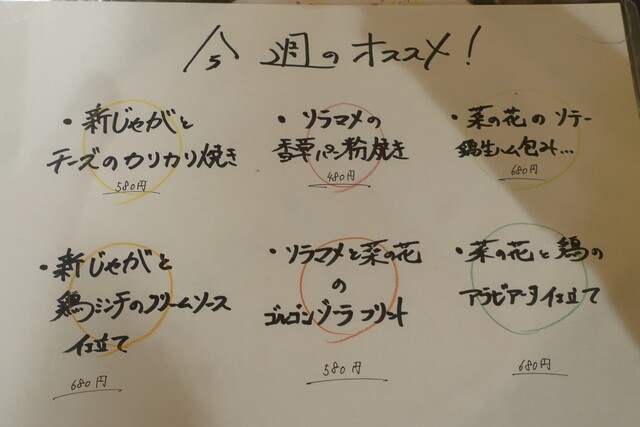 今週のオススメ!
・新じゃがと
チーズのカリカリ焼き
580円
・ソラマメの
香草パン粉焼き
480円
・菜の花のソテー
鶏生ハム包み...
680円
・新じゃがと
鶏ミンチのクリームソース
仕立て
680円
・ソラマメと菜の花
の
ゴルゴンゾーラフリット
580円
・菜の花と鶏の
アラビアータ仕立て
680円